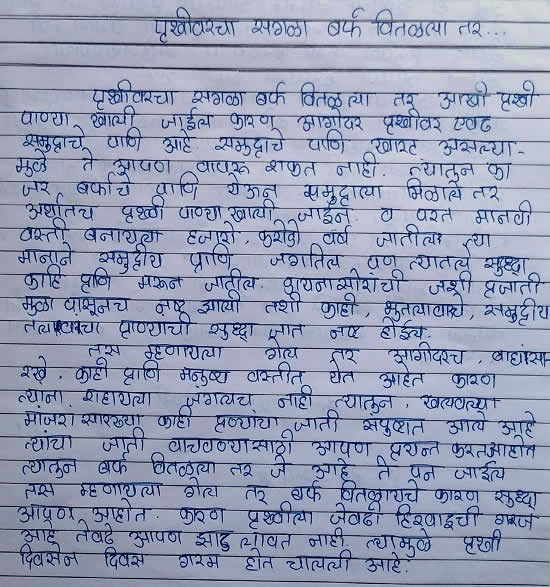 पृथ्वीवरचा सगळा बर्फ वितळला तर...
पृथ्वीवरचा सगळा बर्फ वितळला तर आखी पृथ्वी
पाण्या खाली जाईल कारण आगोदर पृथ्वीवर एवढ
समुद्राचे पाणि आहे. समुद्राचे पाणि खारट असल्या-
मुळे ते आपण वापरू शकत नाही. त्यातुन का
जर बर्फाचे पाणि येऊन समुद्राला मिळाले तर
अर्थातच पृथ्वी पाण्या खाली जाईन. व परत मानवी
वस्ती बनायला हजारो, करोडो वर्ष जातील त्या
मानाने समुद्रीय प्राणि जगतिल पण त्यातले सुध्दा
काहि प्राणि मरून जातील. डायनासोरांची जशी प्रजाती
मुळा पासूनच नष्ट झाली तशी काही, भुतलावरचे, समुद्रीय
तलावरचा प्राण्याची सुध्दा जात नष्ट होईल.
तस म्हणायला गेल तर आगोदरच, वाघांसा-
रखे, काही प्राणि मनुष्य वस्तीत येत आहेत कारण
त्यांना शहायला जंगलच नाही त्यातुन, खवल्या
मांजरां सारख्या काही प्राण्यांचा जाती संपुष्टात आले आहे
त्यांचा जाती वाचवण्यासाठी आपण प्रयन्त करतआहोत
त्यातुन बर्फ वितळला तर जे आहे ते पन जाईल
तस म्हणायला गेल तर बर्फ वितळायचे कारण सुध्दा
आपण आहोत. कारण पृथ्वीला जेवढी हिरवाईची गरज
आहे तेवढे आपण झाड लावत नाही त्यामुळे पृथ्वी
दिवसेन दिवस गरम होत चालली आहे.